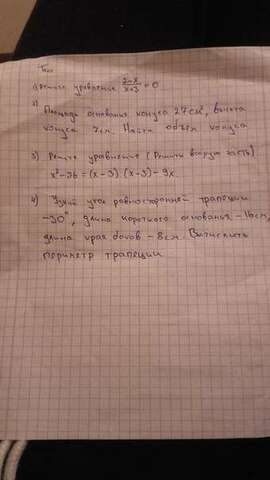 1) Решите уравнение 2-x/x+3 = 0
2)
Площадь основания конуса 27 см², высота
конуса 7см. Найти объём конуса
3) Решите уравнение (Решить вторую часть)
x²-36=(x-3)(x-3)-9x.
4) Узкий угол равносторонней трапеции
-30°, длина короткого основанья -16см,
длина боков -8см. Вычислить
периметр трапеции